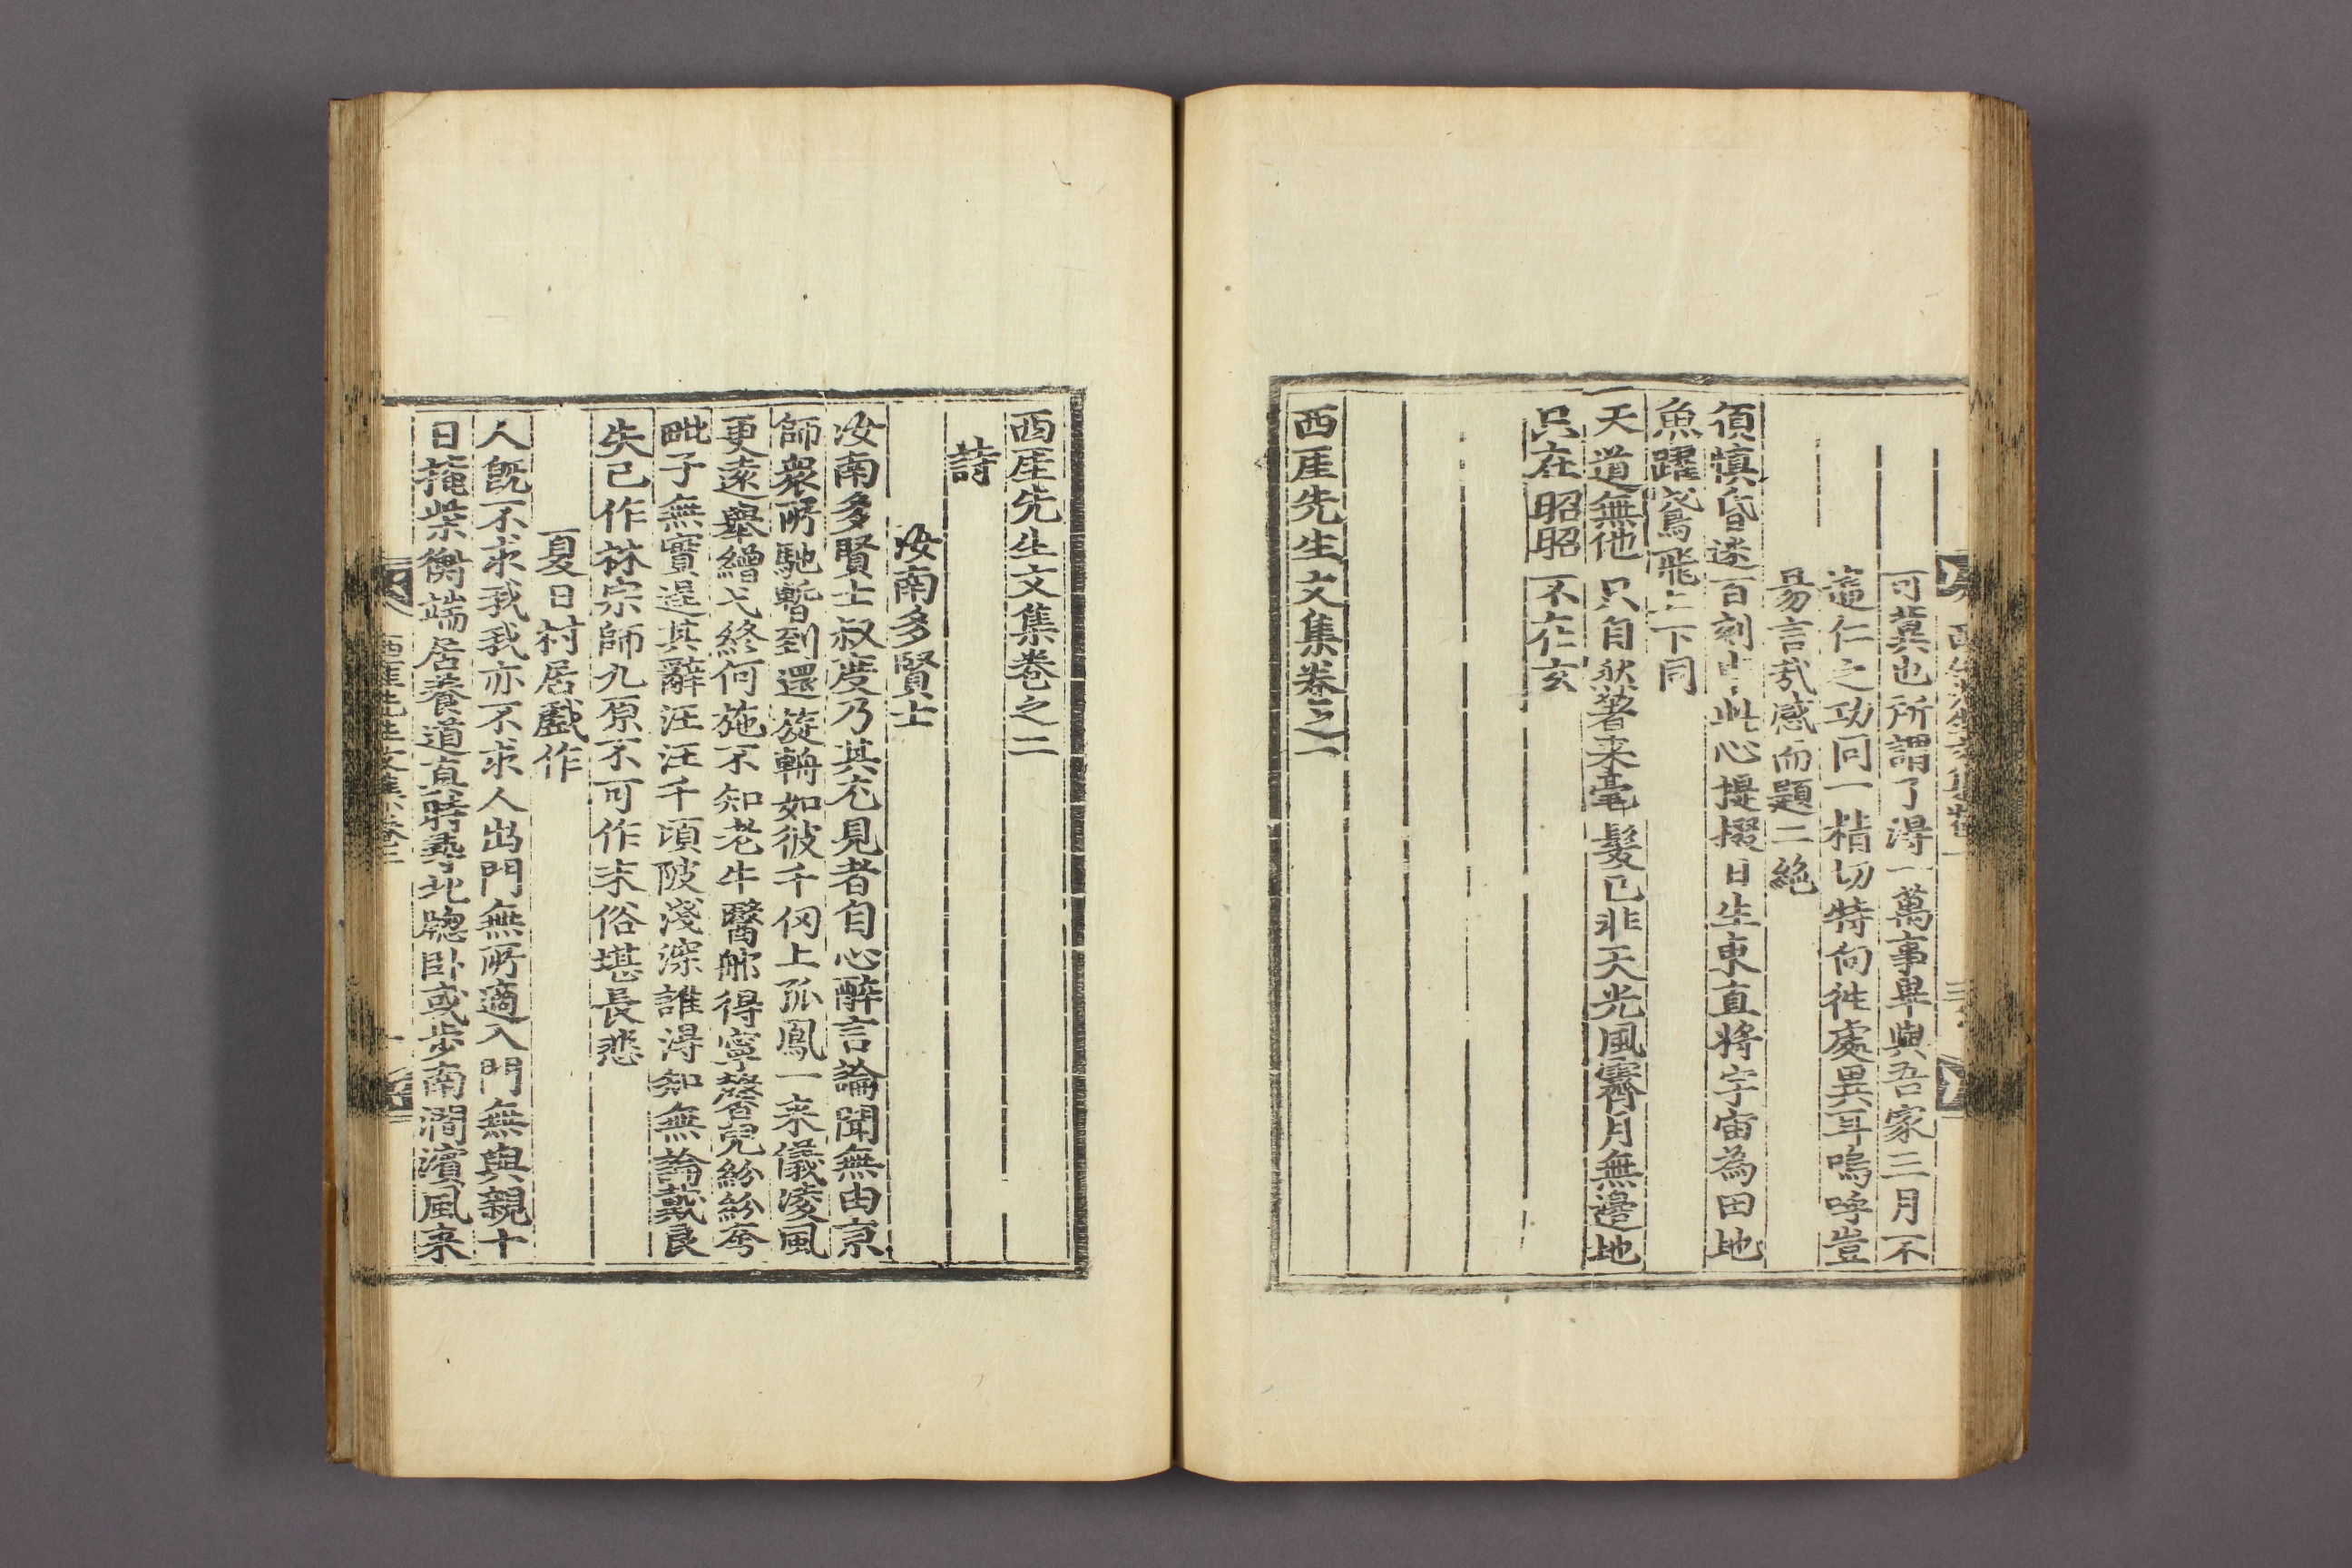 可冀也所謂了得一萬事畢與吾家三月不
違仁之功同一精切特向往處異耳嗚呼豈
易言哉感而題二絶
須慎昏迷百刻中此心提掇日生東直將宇宙為田地
魚躍鳶飛上下同
天道無他只自然著来毫髮已非天光風霽月無邊地
只在昭昭不在玄
西厓先生文集卷之一
西厓先生文集卷之二
詩
汝南多賢士
汝南多賢士叔度乃其尤見者自心醉言論聞無由京
師衆所馳暫到還旋輈如彼千仞上孤鳳一来儀凌風
更遠舉繒弋終何施不知老牛醫能得寧馨兒紛紛夸
毗子無實逞其辭汪汪千頃陂淺深誰得知無論戴良
失已作林宗師九原不可作末俗堪長悲
夏日村居戲作
人旣不求我我亦不求人出門無所適入門無與親十
日掩柴衡端居養道真時尋北牕卧或步南澗濱風来
西厓先生文集卷二
一